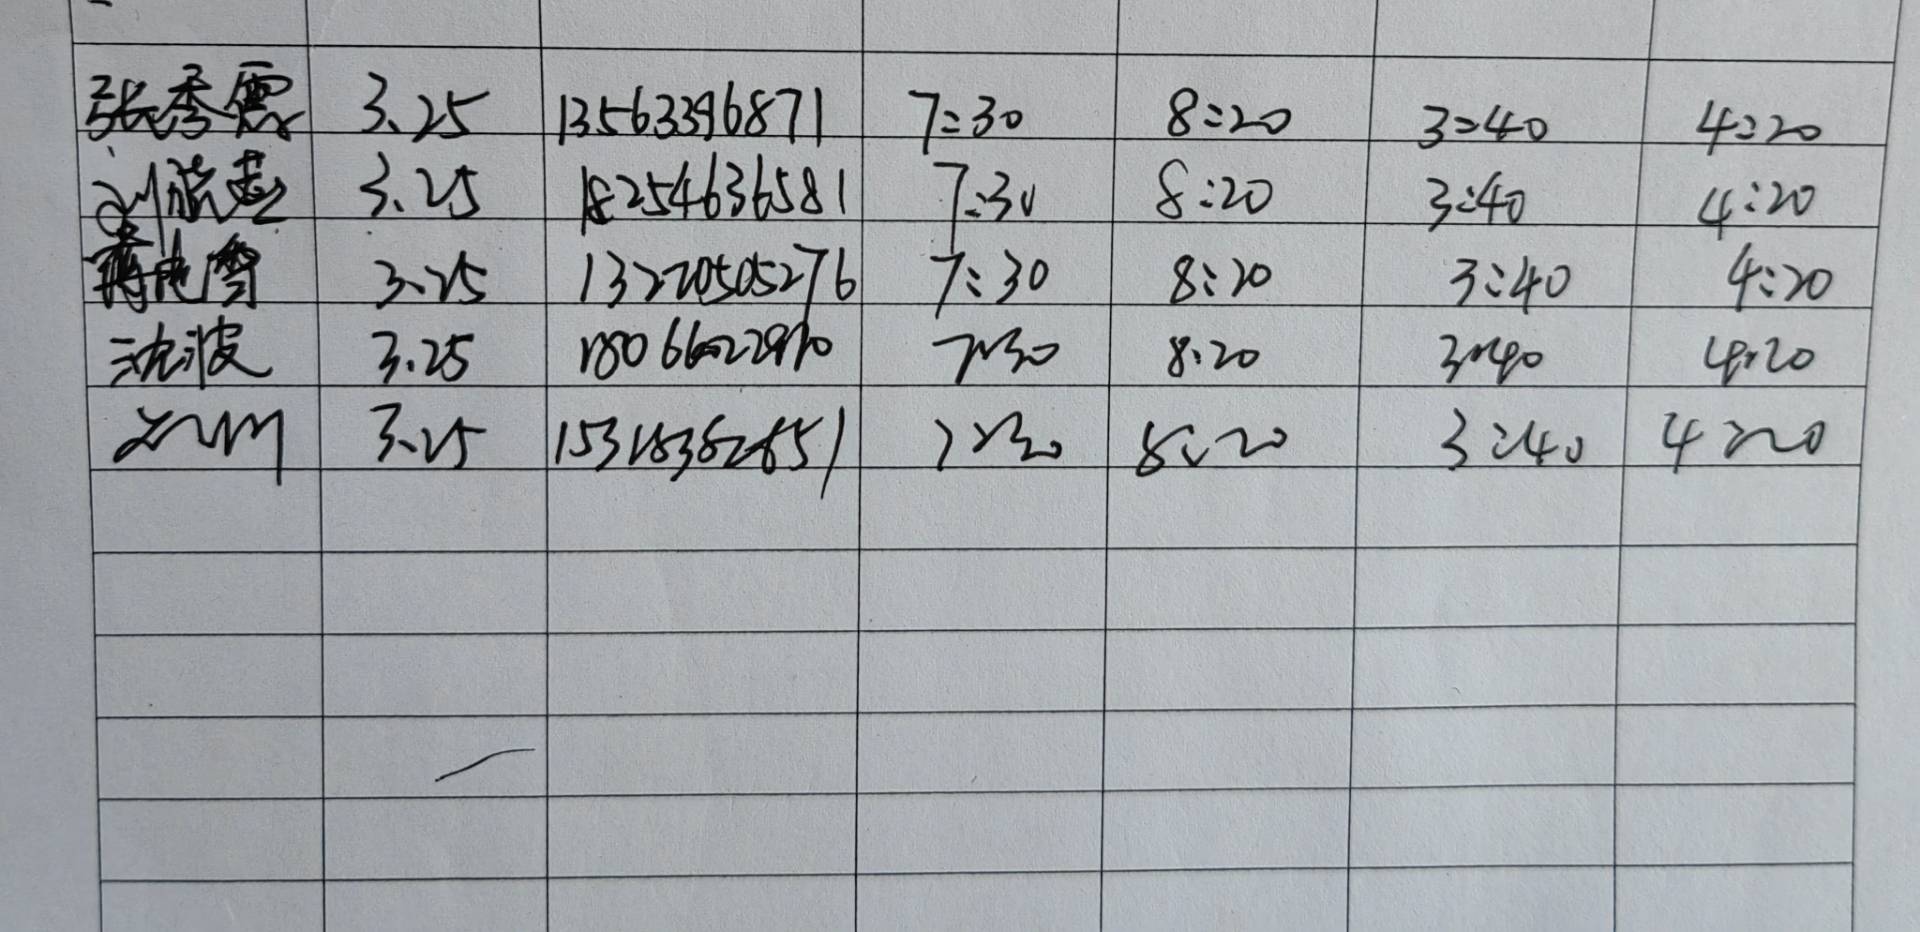 张秀霞 3.25 13563396871 7:30 8:20 3:40 4:20
刘 3.25 18254636581 7:30 8:20 3:40 4:20
蒋 3.25 13220505276 7:30 8:20 3:40 4:20
沈波 3.25 7:30 8.20 3:40 4:20
3.25 7:30 8:20 3:40 4:20